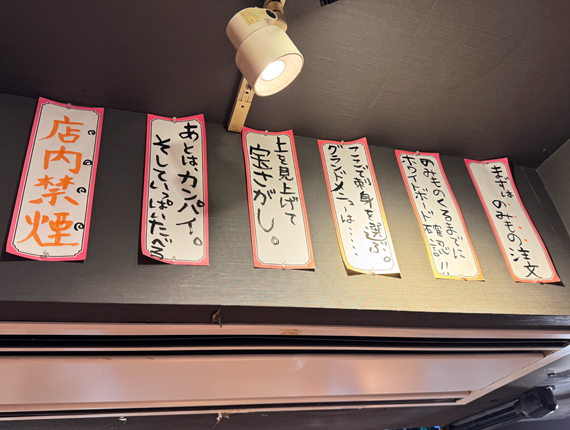 まずは
のみもの注文
のみものくるまでに
ホワイトボード確認!!
ここで刺身を選ぶ。
グランドメニューは・・・・
上を見上げて
宝さがし。
あとは、カンパイ。
そしていっぱいたべる
店内禁煙